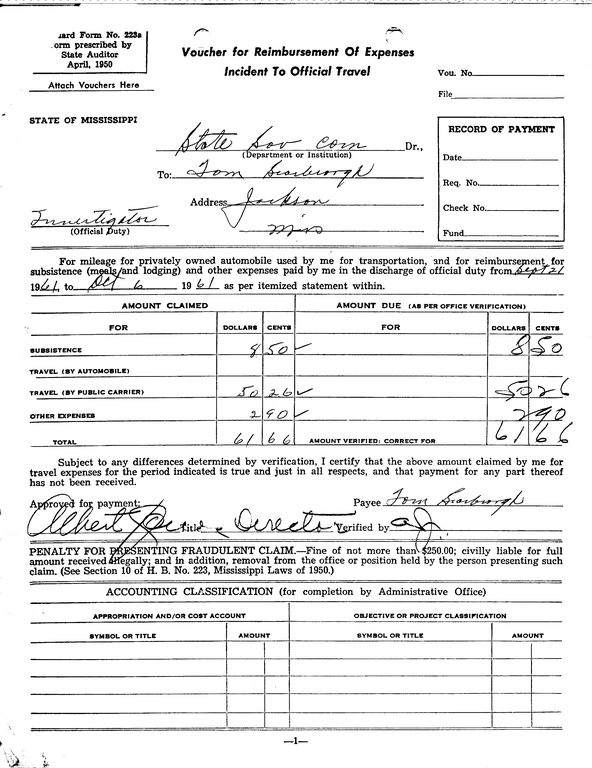 ard Form No. 223a
orm prescribed by
State Auditor
April, 1950
Attach Vouchers Here
Voucher for Reimbursement Of Expenses
Incident To Official Travel
Vou. No.
File
STATE OF MISSISSIPPI
State Sov Com Dr.,
(Department or Institution)
To: Tom Scarbrough
Address Jackson
Miss
Investigator
(Official Duty)
RECORD OF PAYMENT
Date
Req. No.
Check No.
Fund
For mileage for privately owned automobile used by me for transportation, and for reimbursement for
subsistence (meals and lodging) and other expenses paid by me in the discharge of official duty from Sept 21
1961, to Oct 6 1961 as per itemized statement within.
AMOUNT CLAIMED AMOUNT DUE (AS PER OFFICE VERIFICATION)
FOR DOLLARS CENTS FOR DOLLARS CENTS
SUBSISTENCE 8 50 ✓ 8 50
TRAVEL (BY AUTOMOBILE)
TRAVEL (BY PUBLIC CARRIER) 50 26 ✓ 50 26
OTHER EXPENSES 2 90 ✓ 2 90
TOTAL 61 66 AMOUNT VERIFIED: CORRECT FOR 61 66
Subject to any differences determined by verification, I certify that the above amount claimed by me for
travel expenses for the period indicated is true and just in all respects, and that payment for any part thereof
has not been received.
Approved for payment: Payee Tom Scarbrough
Albert Jones Title Director Verified by
PENALTY FOR PRESENTING FRAUDULENT CLAIM.—Fine of not more than $250.00; civilly liable for full
amount received illegally; and in addition, removal from the office or position held by the person presenting such
claim. (See Section 10 of H. B. No. 223, Mississippi Laws of 1950.)
ACCOUNTING CLASSIFICATION (for completion by Administrative Office)
APPROPRIATION AND/OR COST ACCOUNT OBJECTIVE OR PROJECT CLASSIFICATION
SYMBOL OR TITLE AMOUNT SYMBOL OR TITLE AMOUNT
—1—